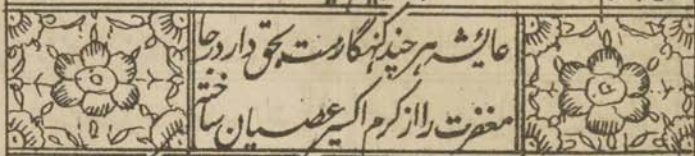 عائیشہ ہر چند گنہگارست بحق دارد رجا
مغفرت را از کرم اکسیر عصیان ساختی